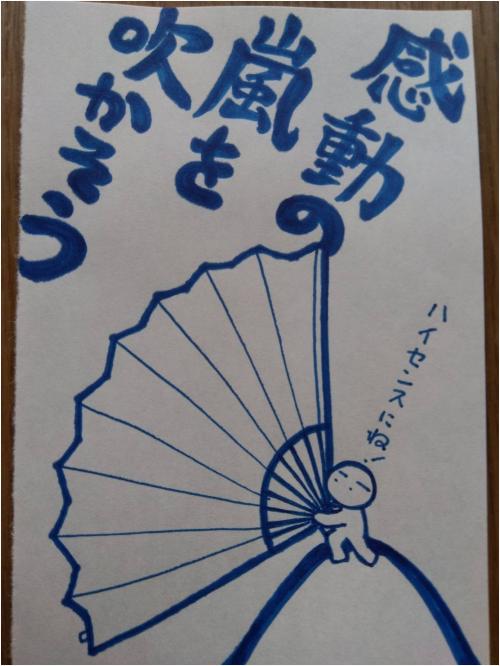 感動の
嵐を
吹かそう
ハイセンスにね!